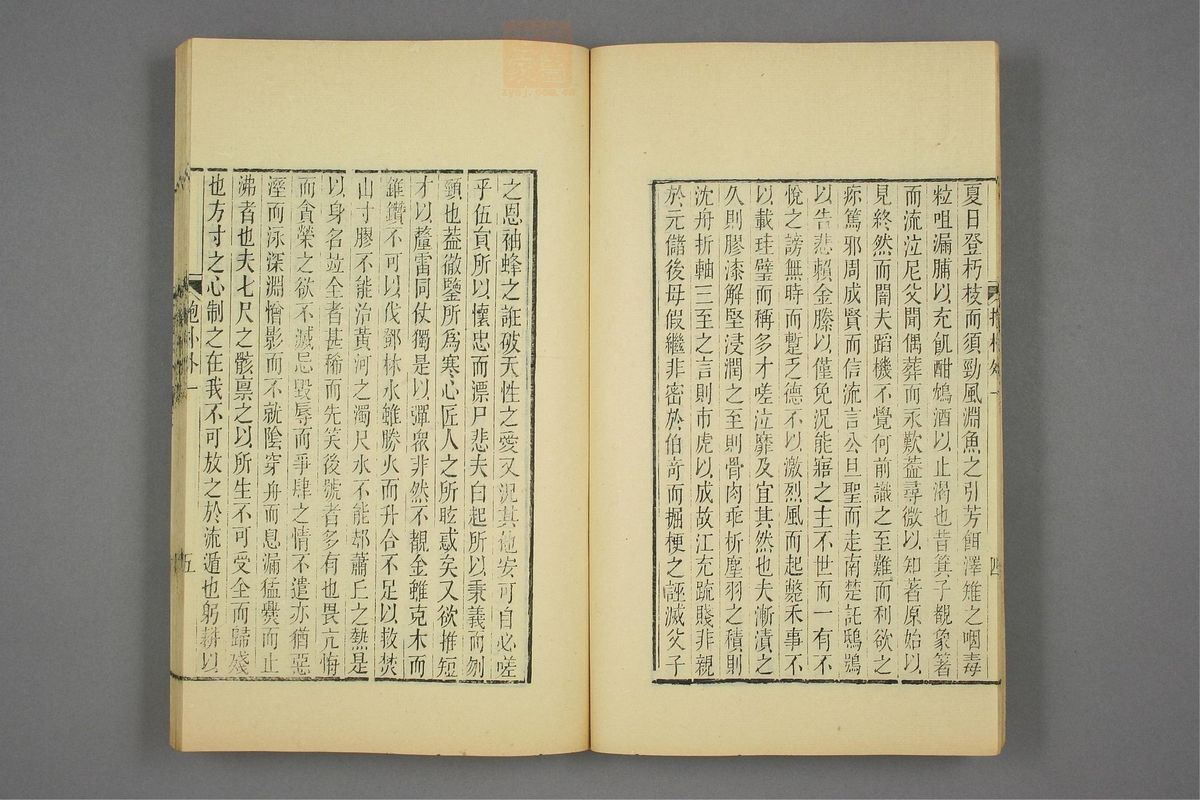 夏日登朽枝而須勁風淵魚之引芳餌澤雉之咽毒
粒咀漏脯以充飢酣鴆酒以止渴也昔箕子覩象箸
而流泣尼父聞偶葬而永歎蓋尋微以知著原始以
見終然而闇夫蹈機不覺何前識之至難而利欲之
疢篤邪周成賢而信流言公旦聖而走南楚託鴟鴞
以告悲賴金縢以僅免況能寤之主不世而一有不
悅之謗無時而蹔乏德不以激烈風而起斃禾事不
以載珪璧而稱多才嗟泣靡及宜其然也夫漸漬之
久則膠漆解堅浸潤之至則骨肉乖析塵羽之積則
沈舟折軸三至之言則市虎以成故江充疏賤非親
於元儲後母假繼非密於伯奇而掘梗之誣滅父子
四
之恩袖蜂之誑破天性之愛又況其他安可自必嗟
乎伍員所以懷忠而漂尸悲夫白起所以秉義而刎
頸也蓋徹鑒所為寒心匠人之所眩惑矣又欲推短
才以釐雷同仗獨是以彈眾非然不覩金雖克木而
錐鑽不可以伐鄧林水雖勝火而升合不足以救焚
山寸膠不能治黃河之濁尺水不能卻蕭丘之熱是
以身名竝全者甚稀而先笑後號者多有也畏亢悔
而貪榮之欲不滅忌毀辱而爭肆之情不遣亦猶惡
溼而泳深淵憎影而不就陰穿舟而息漏猛爨而止
沸者也夫七尺之骸稟之以所生不可受全而歸殘
也方寸之心制之在我不可放之於流遁也躬耕以
抱朴外一
五